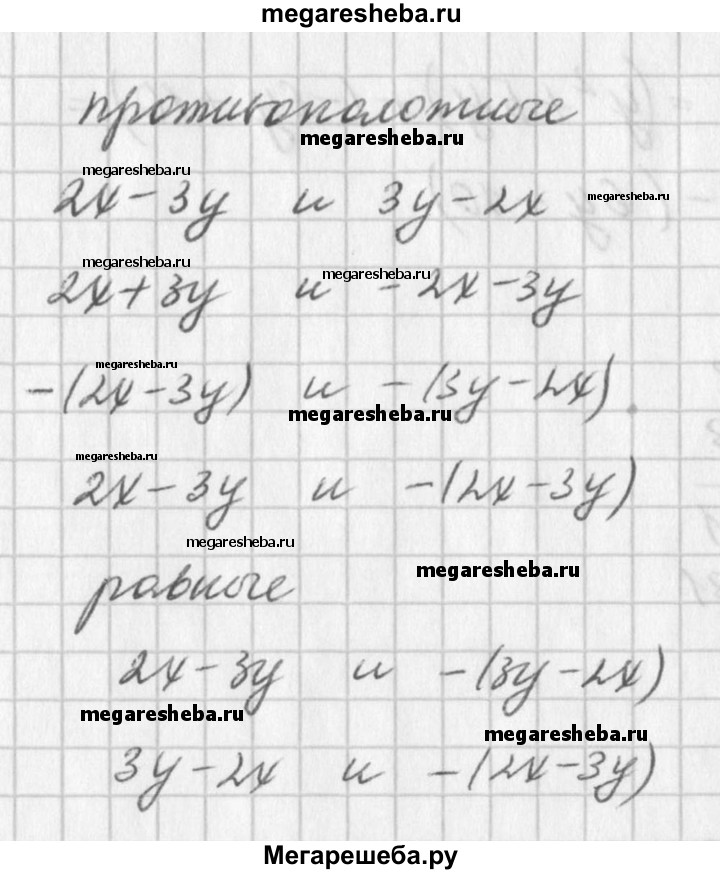 megaresheba.ru
противоположные
megaresheba.ru
megaresheba.ru
2x - 3y и 3y - 2x
megaresheba.ru
megaresheba.ru
megaresheba.ru
2x + 3y и - 2x - 3y
megaresheba.ru
-(2x - 3y) и -(3y - 2x).
megaresheba.ru
megaresheba.ru
2x - 3y и -(2x - 3y)
megaresheba.ru
megaresheba.ru
равные
2x - 3y и -(3y - 2x)
megaresheba.ru
megaresheba.ru
3y - 2x и -(2x - 3y)
Мегарешеба.ру